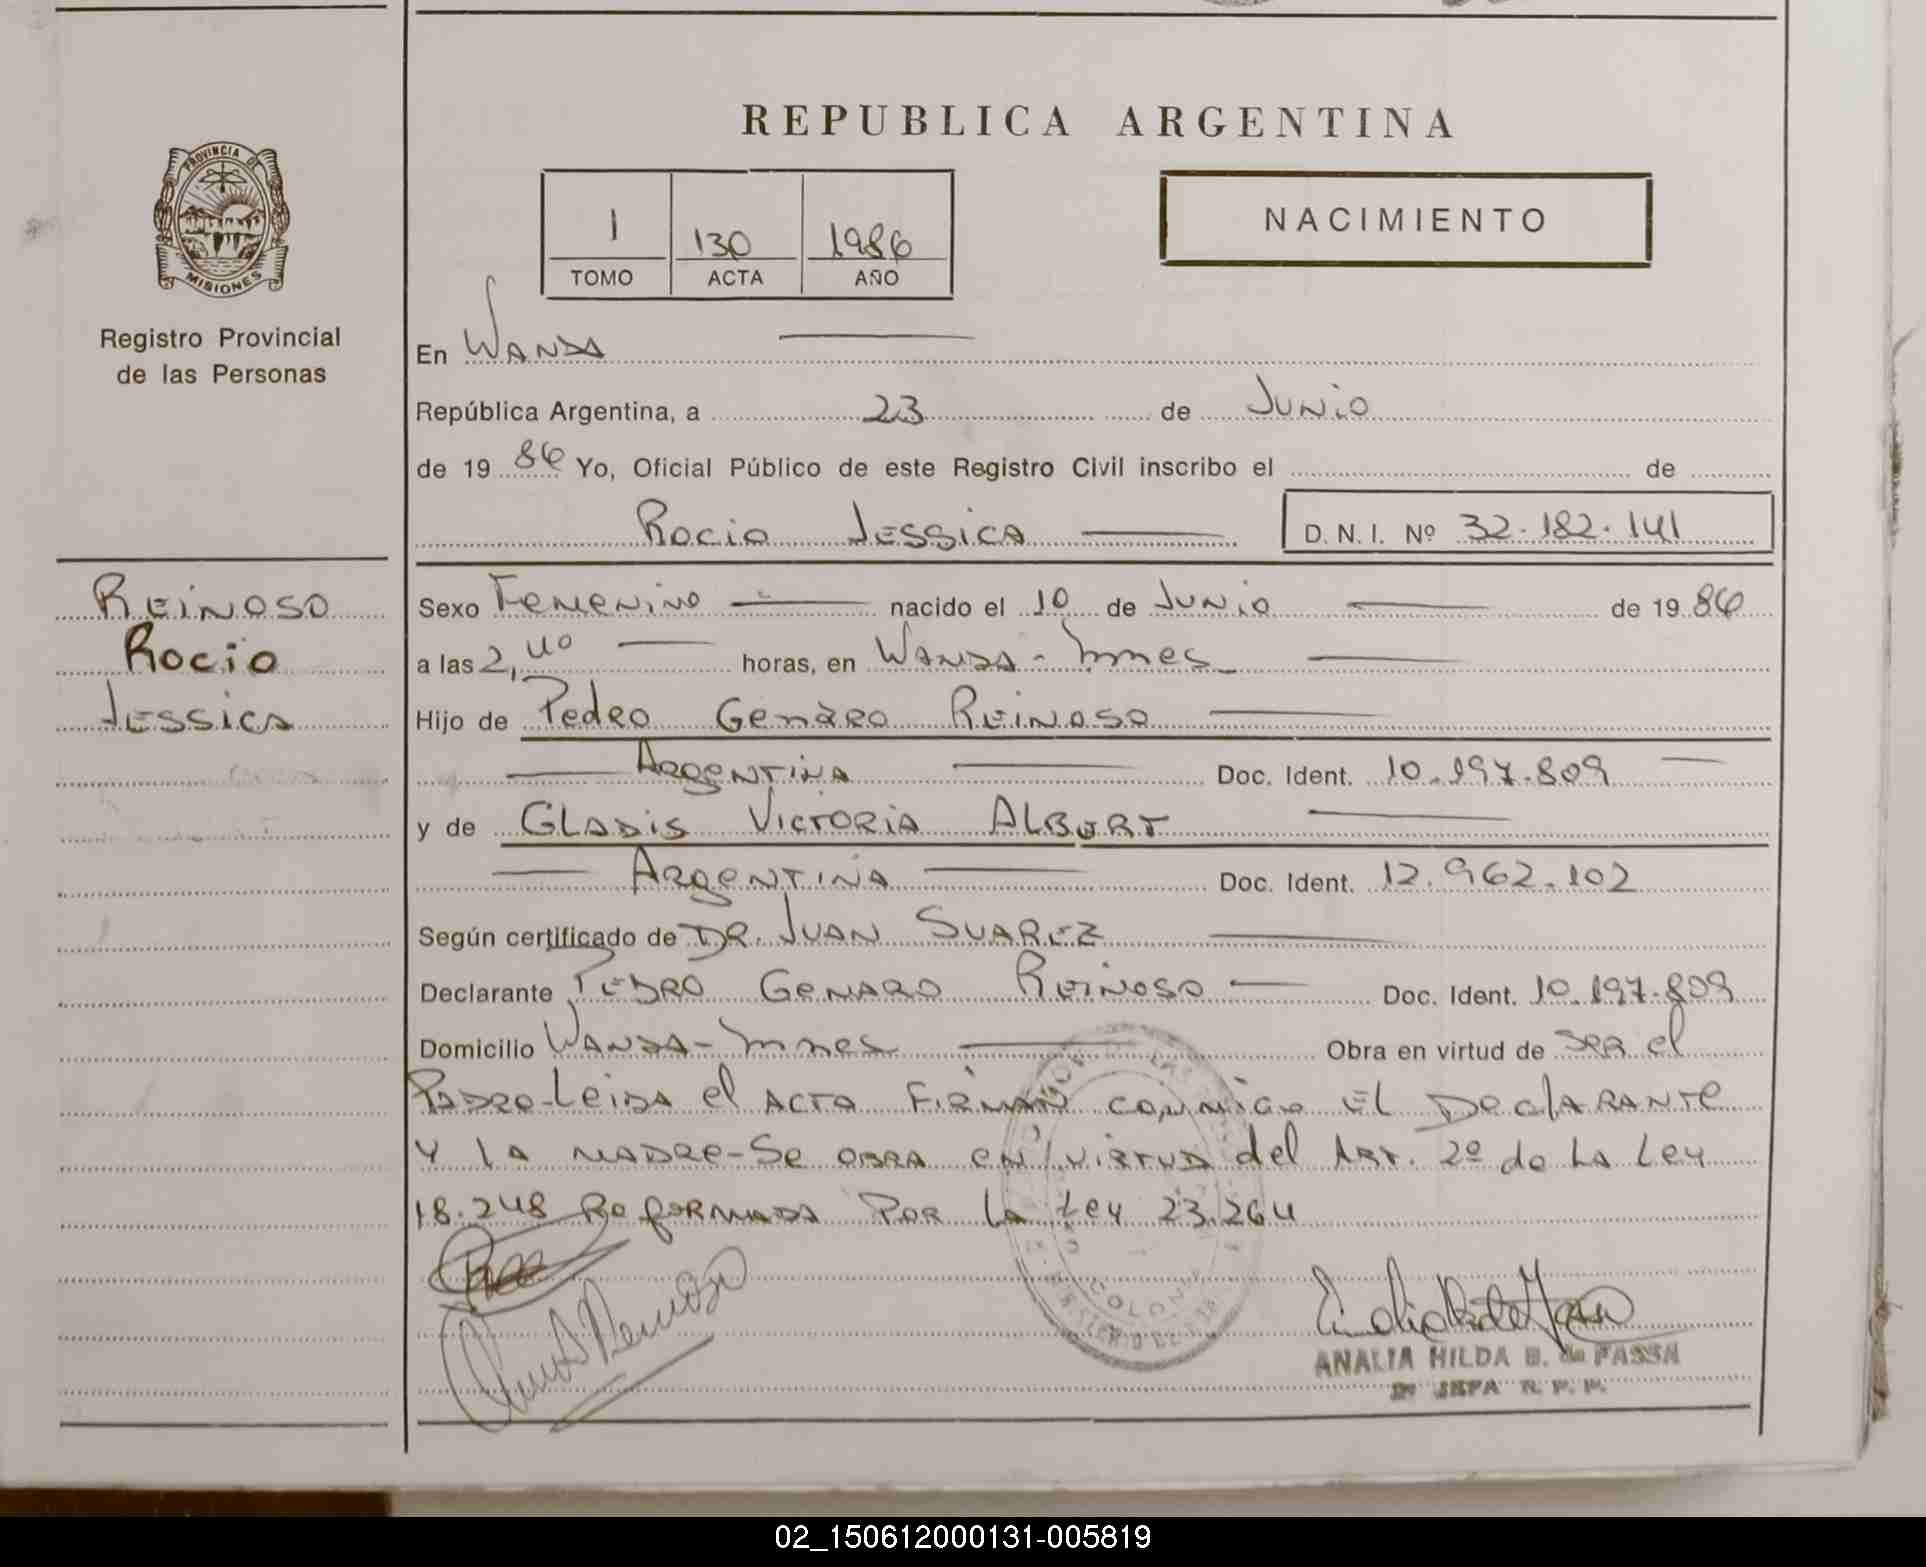 REPUBLICA ARGENTINA
PROVINCIA DE
MISIONES
Registro Provincial
de las Personas
1 130 1986
TOMO ACTA AÑO
NACIMIENTO
En Wanda
República Argentina, a 23 de Junio
de 19 86 Yo, Oficial Público de este Registro Civil inscribo el de
Rocio Jessica D. N. I. Nº 32.182.141
Reinoso
Rocio
Jessica
Sexo Femenino nacido el 10 de Junio de 19 86
a las 2,40 horas, en Wanda - Mnes
Hijo de Pedro Genaro Reinoso
Argentina Doc. Ident. 10.197.809
y de Gladis Victoria Albert
Argentina Doc. Ident. 12.962.102
Según certificado de Dr. Juan Suarez
Declarante Pedro Genaro Reinoso Doc. Ident. 10.197.809
Domicilio Wanda - Mnes Obra en virtud de ser el
Padre - Leida el acta firman conmigo el Declarante
y la madre - Se obra en virtud del Art. 2º de la Ley
18.248 Reformada por la Ley 23.264
COLONIA
ANALIA HILDA B. de PASSA
JEFA R. P. P.
02_150612000131-005819